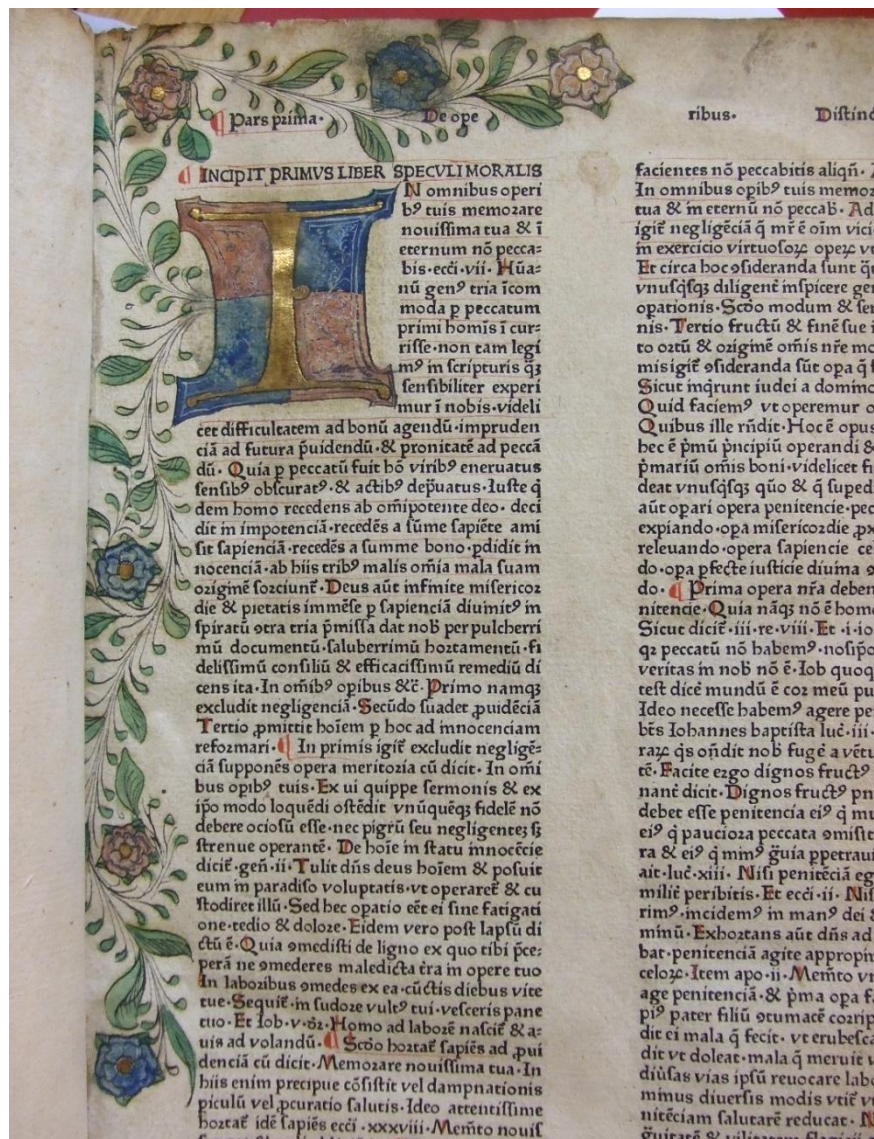 Pars prima· De ope
ribus· Distinc
INCIPIT PRIMVS LIBER SPECVLI MORALIS
IN omnibus operi
bꝰ tuis memorare
nouissima tua & ī
eternum nō pecca⸗
bis·ecci·vii· Hūa⸗
nū genꝰ tria īcom
moda p peccatum
primi homīs ī cur⸗
risse·non tam legi
mꝰ in scripturis qꝫ
sensibiliter experi
mur ī nobis·videli
cet difficultatem ad bonū agendū·impruden
ciā ad futura p̄uidendū·& pronitatē ad peccā
dū· Quia p peccatū fuit hō viribꝰ eneruatus
sensibꝰ obscuratꝰ·& actibꝰ dep̄uatus·Iuste q̇
dem homo recedens ab om̄ipotente deo· deci
dit in impotenciā·recedēs a sūme sapiēte ami
sit sapienciā·recedēs a summe bono·pdidit in
nocenciā·ab hiis tribꝰ malis om̄ia mala suam
originē sorciunt᷑·Deus aūt infinite misericor
die & pietatis immēse p sapienciā diuinitꝰ in
spiratū ꝯtra tria p̄missa dat nob̄ perpulcherri
mū documentū·saluberrimū hortamentū·fi
delissimū consiliū & efficacissimū remediū di
cens ita·In om̄ibꝰ opibus &c̄·Primo namqꝫ
excludit negligenciā·Secūdo suadet ꝓuidēciā
Tertio ꝓmittit hoīem p hoc ad innocenciam
reformari· In primis igit᷑ excludit negligē⸗
ciā supponēs opera meritoria cū dicit· In om̄i
bus opibꝰ tuis·Ex ui quippe sermonis & ex
ip̄o modo loquēdi ostēdit vnūquēqꝫ fidelē nō
debere ociosū esse·nec pigrū seu negligenteꝫ sꝫ
strenue operantē· De hoīe in statu innocēcie
dicit᷑·gen̄·ii·Tulit dn̄s deus hoīem & posuit
eum in paradiso voluptatis·vt operaret᷑ & cu
stodiret illū·Sed hec opatio eēt ei sine fatigati
one·tedio & dolore·Eidem vero post lapsū di
ctū ē·Quia ꝯmedisti de ligno ex quo tibi p̄ce⸗
perā ne ꝯmederes maledicta t̄ra in opere tuo
In laboribus ꝯmedes ex ea·cūctis diebus vite
tue·Sequit᷑·in sudore vultꝰ tui·vesceris pane
tuo·Et Iob·v·dr̄·Homo ad laborē nascit᷑ & a⸗
uis ad volandū· Scd̄o hortat᷑ sapiēs ad ꝓui
denciā cū dicit·Memorare nouissima tua·In
hiis enim precipue cōsistit vel dampnationis
piculū vel ꝓcuratio salutis·Ideo attentissime
hortat᷑ idē sapiēs ecci·xxxviii·Mem̄to nouiss
facientes nō peccabitis aliqn̄·
In omnibus opibꝰ tuis memor
tua & in eternū nō peccab̄· Ad
igit᷑ negligēciā q̄ mr̄ ē oīm vici
in exercicio virtuosoꝝ opeꝝ vt
Et circa hoc ꝯsideranda sunt
vnusq̇sqꝫ diligent᷑ inspicere gen
opationis·Scd̄o modum & fer
nis·Tertio fructū & finē sue
to ortū & originē om̄is nr̄e mo
mis igit᷑ ꝯsideranda sūt opa q̄
Sicut inq̇runt iudei a domino
Quid faciemꝰ vt operemur o
Quibus ille rn̄dit·Hoc ē opus
hec ē p̄mū p̄ncipiū operandi &
p̄mariū om̄is boni·videlicet fi
deat vnusq̇sqꝫ quō & q̄ suped
aūt opari opera penitencie·pec
expiando·opa misericordie ꝓx
releuando·opera sapiencie ce
do·opa pfecte iusticie diuina
do· Prima opera nr̄a deben
nitencie·Quia nāqꝫ nō ē homo
Sicut dicit᷑·iii·re·viii·Et·i·io
qꝛ peccatū nō habemꝰ·nosip̄o
veritas in nob̄ nō ē·Iob quoq
test dicē mundū ē cor meū pu
Ideo necesse habemꝰ agere pe
bt̄s Iohannes baptista luc̄·iii·
raꝝ q̇s on̄dit nob̄ fugē a vētu
tē·Facite ergo dignos fructꝰ
nanē dicit·Dignos fructꝰ pn
debet esse penitencia eiꝰ q̇ mu
eiꝰ q̇ pauciora peccata ꝯmisit
ra & eiꝰ q̇ minꝰ ḡuia ppetraui
ait·luc̄·xiii· Nisi penitēciā eg
milit᷑ peribitis·Et ecci·ii· Nis
rimꝰ·incidemꝰ in manꝰ dei
minū·Exhortans aūt dn̄s ad
bat·penitenciā agite appropin
celoꝝ·Item apo·ii·Mem̄to vn
age penitenciā·& p̄ma opa fa
piꝰ pater filiū ꝯtumacē corrip
dit ei mala q̄ fecit· vt erubesca
dit vt doleat·mala q̄ meruit
diūsas vias ip̄sū reuocare labo
minus diuersis modis vtit᷑ vi
nitēciam salutarē reducat·